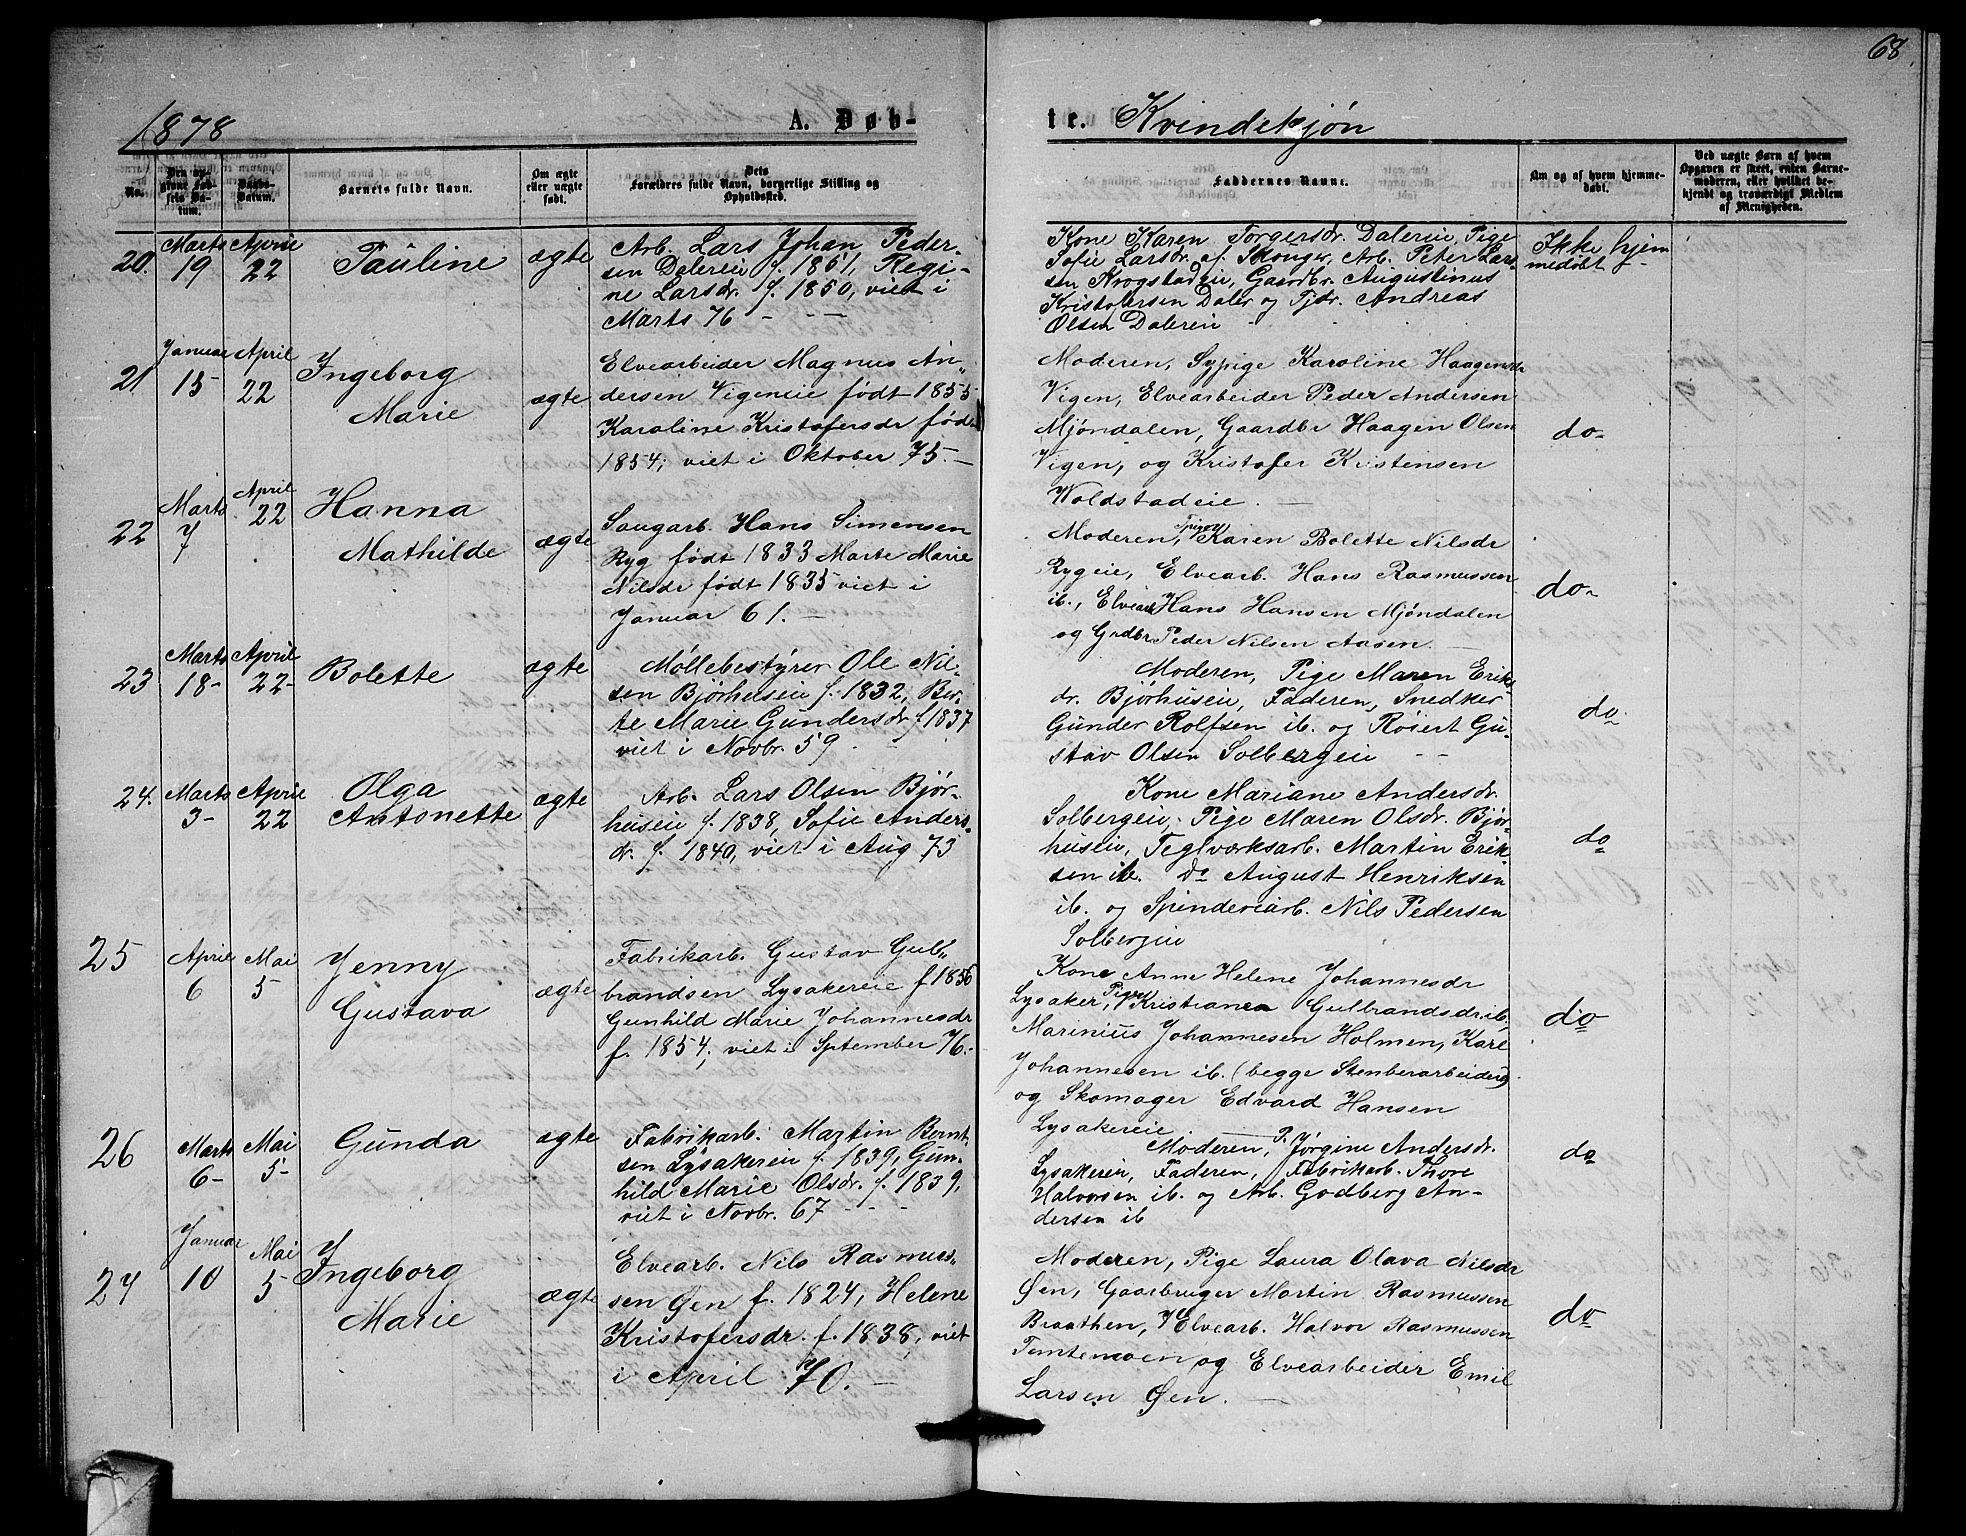 68.
1878
A. Døb-
te. Kvindekjøn
No.
Den op-
givne Fød-
sels Da-
tum.
Daabs-
Datum.
Barnets fulde Navn.
Om ægte
eller uægte
født.
Dets
Forældres fulde Navn, borgerlige Stilling og
Opholdssted.
Faddernes Navne.
Om og af hvem hjemme-
døbt.
Ved uægte Børn af hvem
Opgaven er skeet, enden Barne-
moderen, eller hvilket be-
kjendt og troværdigt Medlem
af Menigheden.
20.
Marts
19
April
22
Pauline
ægte
Arb. Lars Johan Peder-
sen Dalereie f. 1851, Regi-
ne Larsdr. f. 1850, viet i
Marts 76 - - -
Kone Karen Torgersdr. Dalereie, Pige
Sofie Larsdr. af Skouger, Arb. Peter Lar-
sen Krogstadeie, Gaardbr. Augustinus
Kristofersen Daler og Tjdr. Andreas
Olsen Dalereie
Ikke hjem
medøbt -
21
Januar
15
April
22
Ingeborg
Marie
ægte
Elvearbeider Magnus An-
dersen Vigeneie født 1855
Karoline Kristofersdr fød
1854; viet i Oktober 75. -
Moderen, Sypige Karoline Haagensdr
Vigen, Elvearbeider Peder Andersen
Mjøndalen, Gaardbr Haagen Olsen
Vigen, og Kristofer Kristensen
Woldstadeie. -
do-
22
Marts
7
April
22
Hanna
Mathilde
ægte
Saugarb. Hans Simensen
Ryg født 1833 Marte Marie
Nilsdr født 1835 viet i
Januar 61. -
Moderen, Pige Karen Bolette Nilsdr
Rygeie, Elvearb. Hans Rasmussen
ib., Elvearb Hans Hansen Mjøndalen
og Grdbr Peder Nilsen Aasen. -
do-
23
Marts
18-
April
22-
Bolette
ægte
Møllebestyrer Ole Nil-
sen Bjørhuseie f. 1832, Ber-
te Marie Gundersdr f 1837
viet i Novbr. 59
Moderen, Pige Maren Eriks-
dr. Bjørhuseie, Faderen, Snedker
Gunder Rolfsen ib. og Røiert Gu-
stav Olsen Solbergeie
do.
24.
Marts
3-
April
22
Olga
Antonette
ægte
Arb. Lars Olsen Bjør-
huseie f. 1838, Sofie Anders-
dr. f. 1840, viet i Aug 73
Kone Mariane Andersdr.
Solbergeie, Pige Maren Olsdr. Bjør-
huseie, Teglværksarb. Martin Erik
sen ib. Do August Henriksen
ib. og Spinderiarb. Nils Pedersen
Solbergeie
do
25
April
6
Mai
5
Jenny
Gustava
ægte
Fabrikarb. Gustav Gul-
brandsen Lysakereie f 1856
Gunhild Marie Johannesdr
f. 1854; viet i Sptember 76. -
Kone Anne Helene Johannesdr
Lysaker, Pige Kristianea Gulbrandsdr. ib,
Marinius Johannesen Holmen, Karl
Johannesen ib. (begge Stenberarbeidere)
og Skomager Edvard Hansen
Lysakereie.
do
26
Marts
6-
Mai
5-
Gunda
ægte
Fabrikarb. Martin Bernt-
sen Lysakereie f. 1839, Gun-
hild Marie Olsdr. f. 1839,
viet i Novbr. 67 - - -
Moderen, P. Jørgine Andersdr.
Lysakereie, Faderen, Fabrikarb. Thore
Halvorsen ib. og Arb. Godberg An-
dersen ib
do
27
Januar
10
Mai
5-
Ingeborg
Marie
ægte
Elvearb. Nils Rasmus-
sen Øen f. 1824, Helene
Kristofersdr. f. 1838, viet
i April 70. -
Moderen, Pige Laura Olava Nilsdr
Øen, Gaarbruger Martin Rasmussen
Braathen, Elvearb. Halvor Rasmussen
Tomtemoen og Elvearbeider Emil
Larsen Øen. -
do